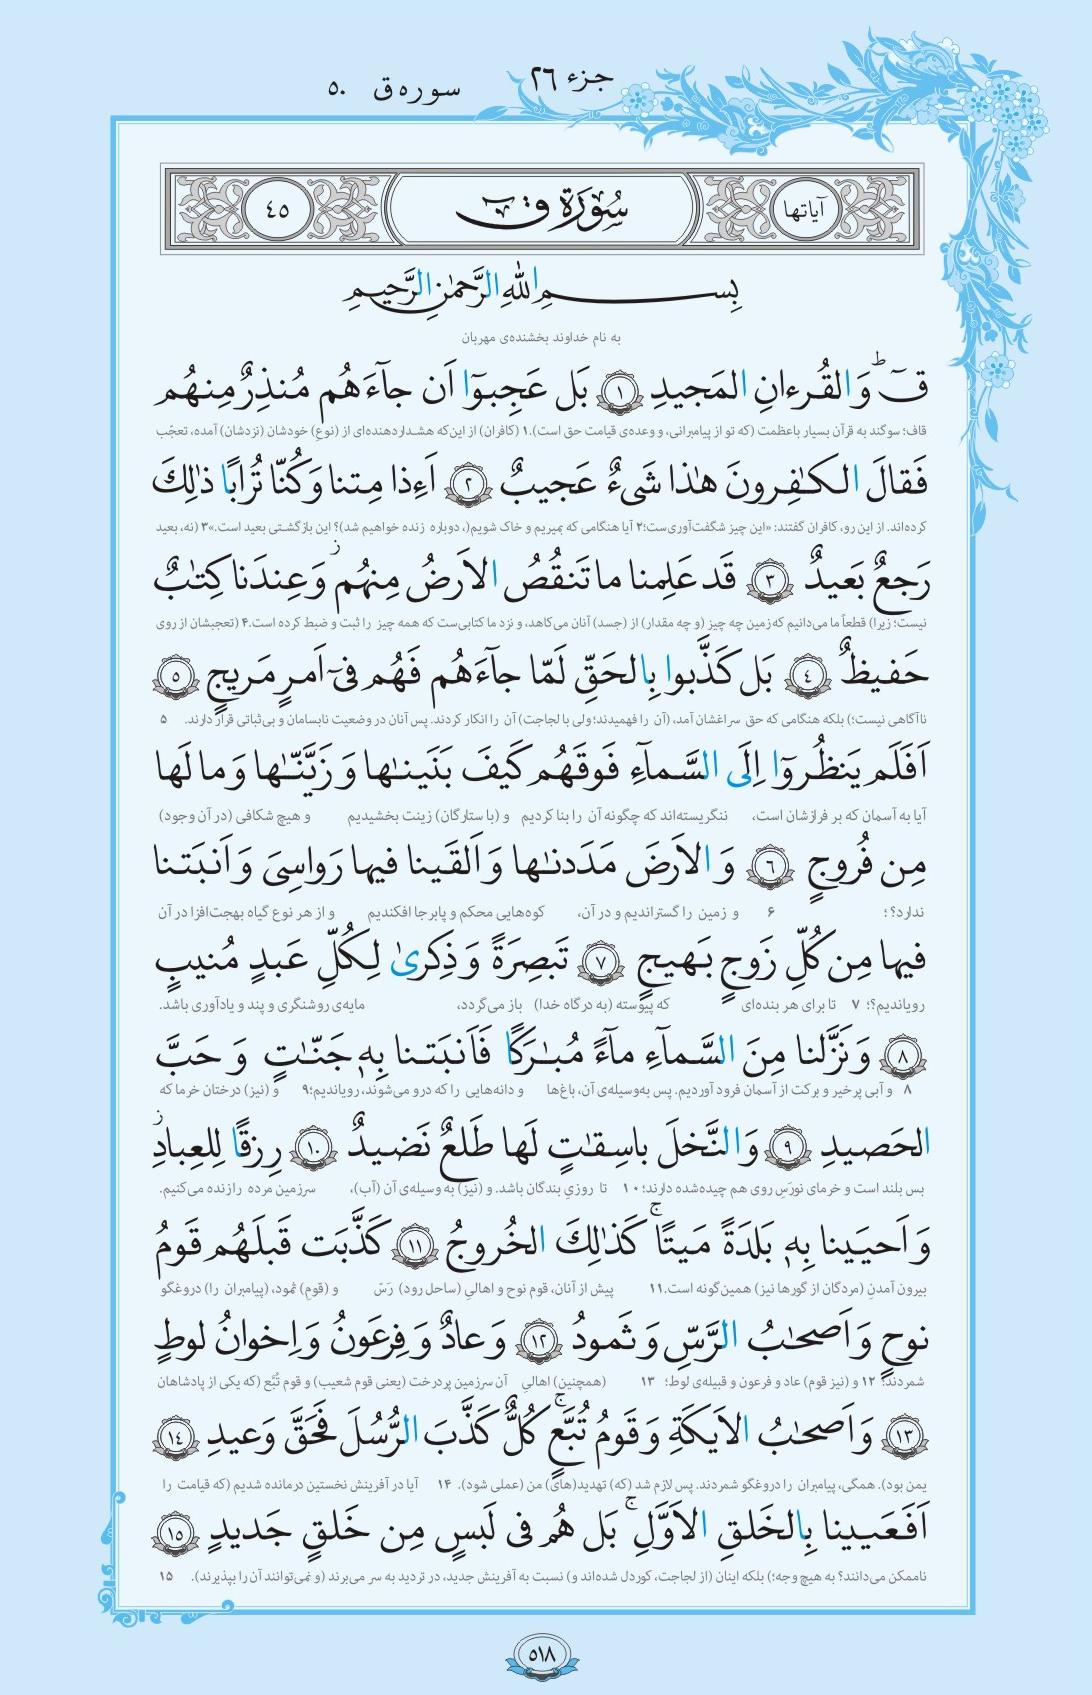 جزء ۲۶ سوره ق ۵۰
آیاتها سُورَةُ ق ٤٥
بِسمِ اللهِ الرَّحمٰنِ الرَّحيمِ
به نام خداوند بخشنده‌ی مهربان
قٓ ۚ وَ القُرءانِ المَجيدِ ﴿١﴾ بَل عَجِبوٓا اَن جآءَهُم مُنذِرٌ مِنهُم
قاف؛ سوگند به قرآن بسیار باعظمت (که تو از پیامبرانی، و وعده‌ی قیامت حق است).۱ (کافران) از این‌که هشداردهنده‌ای از (نوع) خودشان (نزدشان) آمده، تعجّب
فَقالَ الكـٰفِرونَ هٰذا شَیءٌ عَجيبٌ ﴿٢﴾ اَءِذا مِتنا وَ كُنّا تُرابًا ذٰلِكَ
کرده‌اند. از این رو، کافران گفتند: «این چیز شگفت‌آوری‌ست؛۲ آیا هنگامی که بمیریم و خاک شویم(، دوباره زنده خواهیم شد)؟ این بازگشتی بعید است.»۳ (نه، بعید
رَجعٌ بَعيدٌ ﴿٣﴾ قَد عَلِمنا ما تَنقُصُ الاَرضُ مِنهُم ز وَ عِندَنا كِتـٰبٌ
نیست؛ زیرا) قطعاً ما می‌دانیم که زمین چه چیز (و چه مقدار) از (جسد) آنان می‌کاهد، و نزد ما کتابی‌ست که همه چیز را ثبت و ضبط کرده است.۴ (تعجبشان از روی
حَفيظٌ ﴿٤﴾ بَل كَذَّبوا بِالحَقِّ لَمّا جآءَهُم فَهُم فىٓ اَمرٍ مَريجٍ ﴿٥﴾
ناآگاهی نیست؛) بلکه هنگامی که حق سراغشان آمد، (آن را فهمیدند؛ ولی با لجاجت) آن را انکار کردند. پس آنان در وضعیت نابسامان و بی‌ثباتی قرار دارند. ۵
اَفَلَم يَنظُروٓا اِلَى السَّمآءِ فَوقَهُم كَيفَ بَنَينـٰها وَ زَيَّنّـٰها وَ ما لَها
آیا به آسمان که بر فرازشان است، ننگریسته‌اند که چگونه آن را بنا کردیم و (با ستارگان) زینت بخشیدیم و هیچ شکافی (در آن وجود)
مِن فُروجٍ ﴿٦﴾ وَ الاَرضَ مَدَدنـٰها وَ اَلقَينا فيها رَواسِىَ وَ اَنبَتنا
ندارد؟؛ ۶ و زمین را گستراندیم و در آن، کوه‌هایی محکم و پابرجا افکندیم و از هر نوع گیاه بهجت‌افزا در آن
فيها مِن كُلِّ زَوجٍ بَهيجٍ ﴿٧﴾ تَبصِرَةً وَ ذِكرىٰ لِكُلِّ عَبدٍ مُنيبٍ
رویاندیم؟؛ ۷ تا برای هر بنده‌ای که پیوسته (به درگاه خدا) باز می‌گردد، مایه‌ی روشنگری و پند و یادآوری باشد.
﴿٨﴾ وَ نَزَّلنا مِنَ السَّمآءِ مآءً مُبـٰرَكًا فَاَنبَتنا بِهٖ جَنّـٰتٍ وَ حَبَّ
۸ و آبی پرخیر و برکت از آسمان فرود آوردیم. پس به‌وسیله‌ی آن، باغ‌ها و دانه‌هایی را که درو می‌شوند، رویاندیم؛۹ و (نیز) درختان خرما که
الحَصيدِ ﴿٩﴾ وَ النَّخلَ باسِقـٰتٍ لَها طَلعٌ نَضيدٌ ﴿١٠﴾ رِزقًا لِلعِبادِ ز
بس بلند است و خرمای نورَس روی هم چیده‌شده دارند؛۱۰ تا روزیِ بندگان باشد. و (نیز) به وسیله‌ی آن (آب)، سرزمین مرده را زنده می‌کنیم.
وَ اَحيَينا بِهٖ بَلدَةً مَيتًا ۚ كَذٰلِكَ الخُروجُ ﴿١١﴾ كَذَّبَت قَبلَهُم قَومُ
بیرون آمدنِ (مردگان از گورها نیز) همین‌گونه است.۱۱ پیش از آنان، قوم نوح و اهالیِ (ساحل رود) رَسّ و (قوم) ثمود، (پیامبران را) دروغگو
نوحٍ وَ اَصحـٰبُ الرَّسِّ وَ ثَمودُ ﴿١٢﴾ وَ عادٌ وَ فِرعَونُ وَ اِخوانُ لوطٍ
شمردند؟ ۱۲ و (نیز قوم) عاد و فرعون و قبیله‌ی لوط؛ ۱۳ (همچنین) اهالیِ آن سرزمین پردرخت (یعنی قوم شعیب) و قوم تُبَّع (که یکی از پادشاهان
﴿١٣﴾ وَ اَصحـٰبُ الاَيكَةِ وَ قَومُ تُبَّعٍ ۚ كُلٌّ كَذَّبَ الرُّسُلَ فَحَقَّ وَعيدِ ﴿١٤﴾
یمن بود). همگی، پیامبران را دروغگو شمردند. پس لازم شد (که) تهدید(های) من (عملی شود). ۱۴ آیا در آفرینش نخستین درمانده شدیم (که قیامت را
اَفَعَيينا بِالخَلقِ الاَوَّلِ ۚ بَل هُم فى لَبسٍ مِن خَلقٍ جَديدٍ ﴿١٥﴾
ناممکن می‌دانند؟ به هیچ وجه؛) بلکه اینان (از لجاجت، کوردل شده‌اند و) نسبت به آفرینش جدید، در تردید به سر می‌برند (و نمی‌توانند آن را بپذیرند). ۱۵
۵۱۸